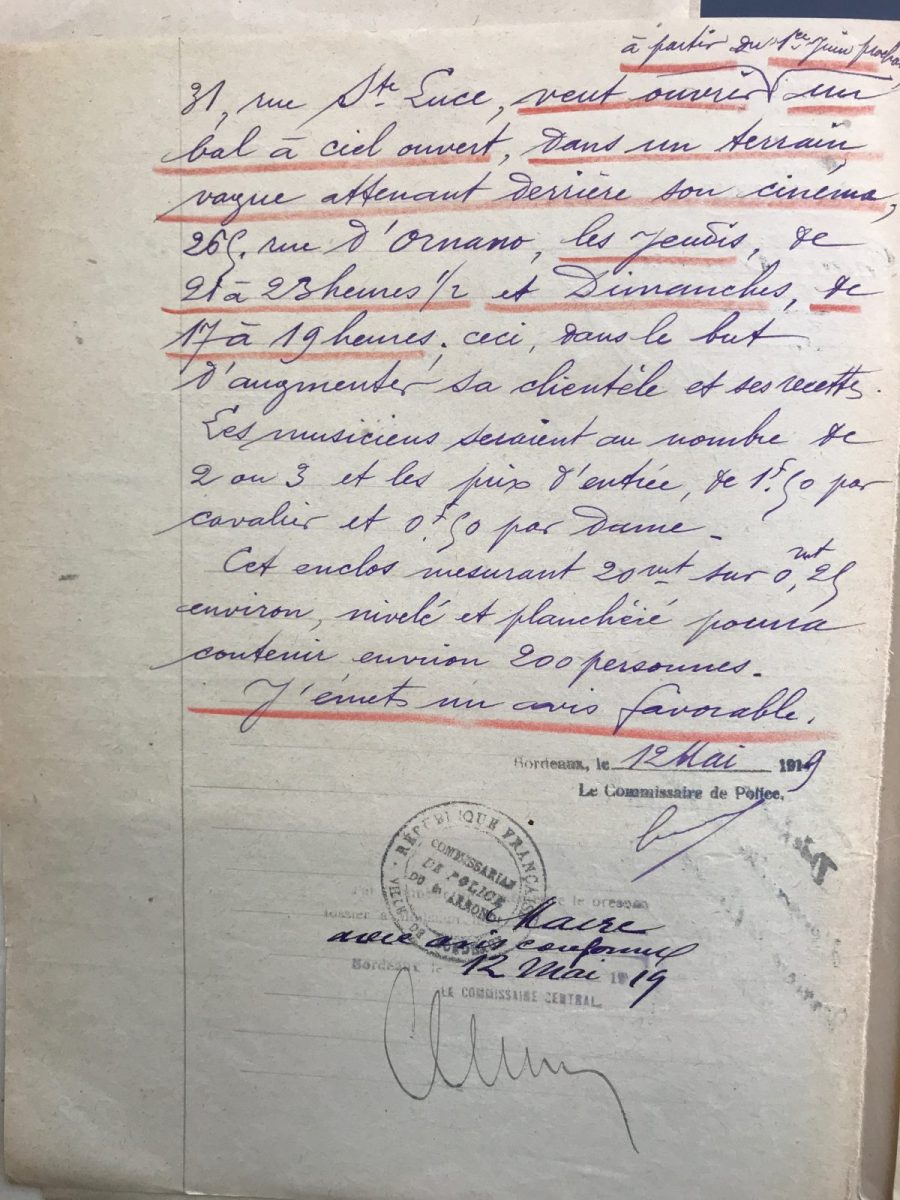 à partir du 1er Juin prochain,
31, rue Ste Luce, veut ouvrir un
bal à ciel ouvert, dans un terrain
vague attenant derrière son cinéma,
265, rue d'Ornano, les Jeudis, de
21 à 23 heures 1/2 et Dimanches, de
17 à 19 heures, ceci, dans le but
d'augmenter sa clientèle et ses recettes.
Les musiciens seraient au nombre de
2 ou 3 et les prix d'entrée, de 1f.50 par
cavalier et 0f.50 par Dame_
Cet enclos mesurant 20mt sur 0,mt25
environ, nivelé et planchéié pourra
contenir environ 200 personnes_
J'émets un avis favorable.
Bordeaux, le 12 Mai 1919
Le Commissaire de Police,
RÉPUBLIQUE FRANÇAISE
COMMISSARIAT
DE POLICE
ARROND
VILLE DE BORDEAUX
Maire
avec avis conforme
Bordeaux, le 12 Mai 1919
LE COMMISSAIRE CENTRAL.